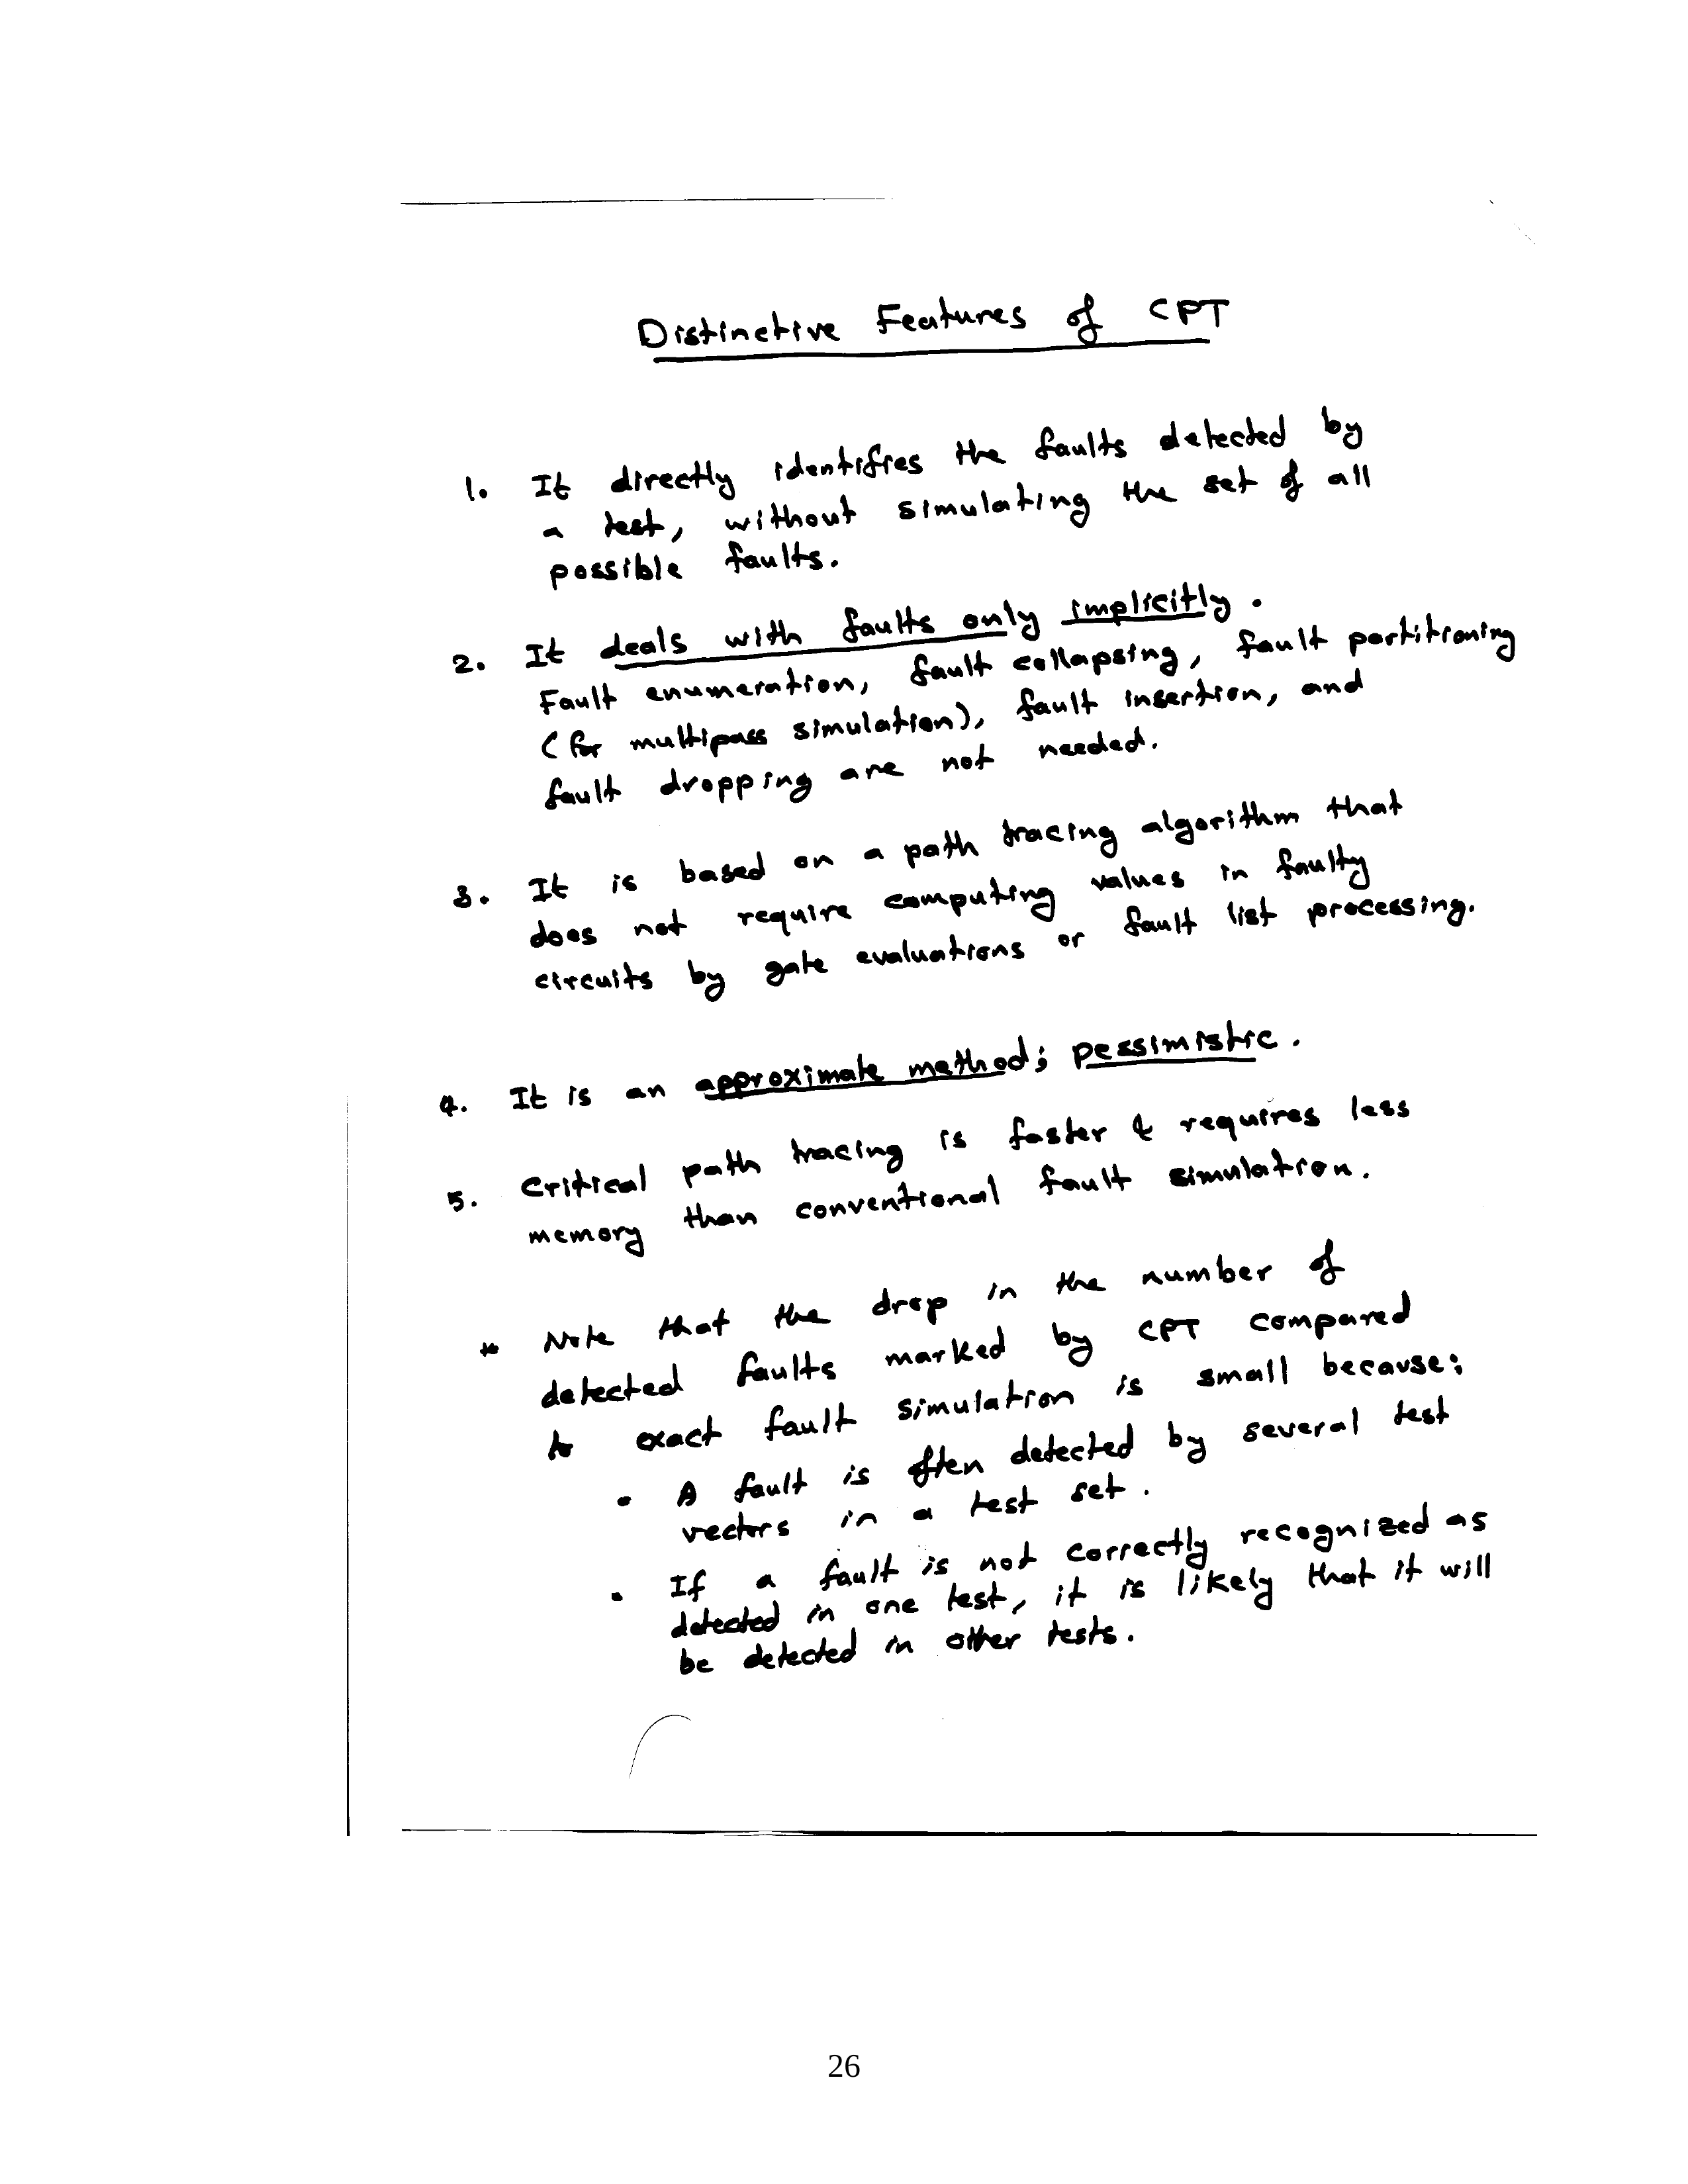 Distinctive Features of CPT
1. It directly identifies the faults detected by
a test, without simulating the set of all
possible faults.
2. It deals with faults only implicitly.
Fault enumeration, fault collapsing, fault partitioning
(for multipass simulation), fault insertion, and
fault dropping are not needed.
3. It is based on a path tracing algorithm that
does not require computing values in faulty
circuits by gate evaluations or fault list processing.
4. It is an approximate method; pessimistic.
5. Critical path tracing is faster & requires less
memory than conventional fault simulation.
* Note that the drop in the number of
detected faults marked by CPT compared
to exact fault simulation is small because:
• A fault is often detected by several test
vectors in a test set.
• If a fault is not correctly recognized as
detected in one test, it is likely that it will
be detected in other tests.
26